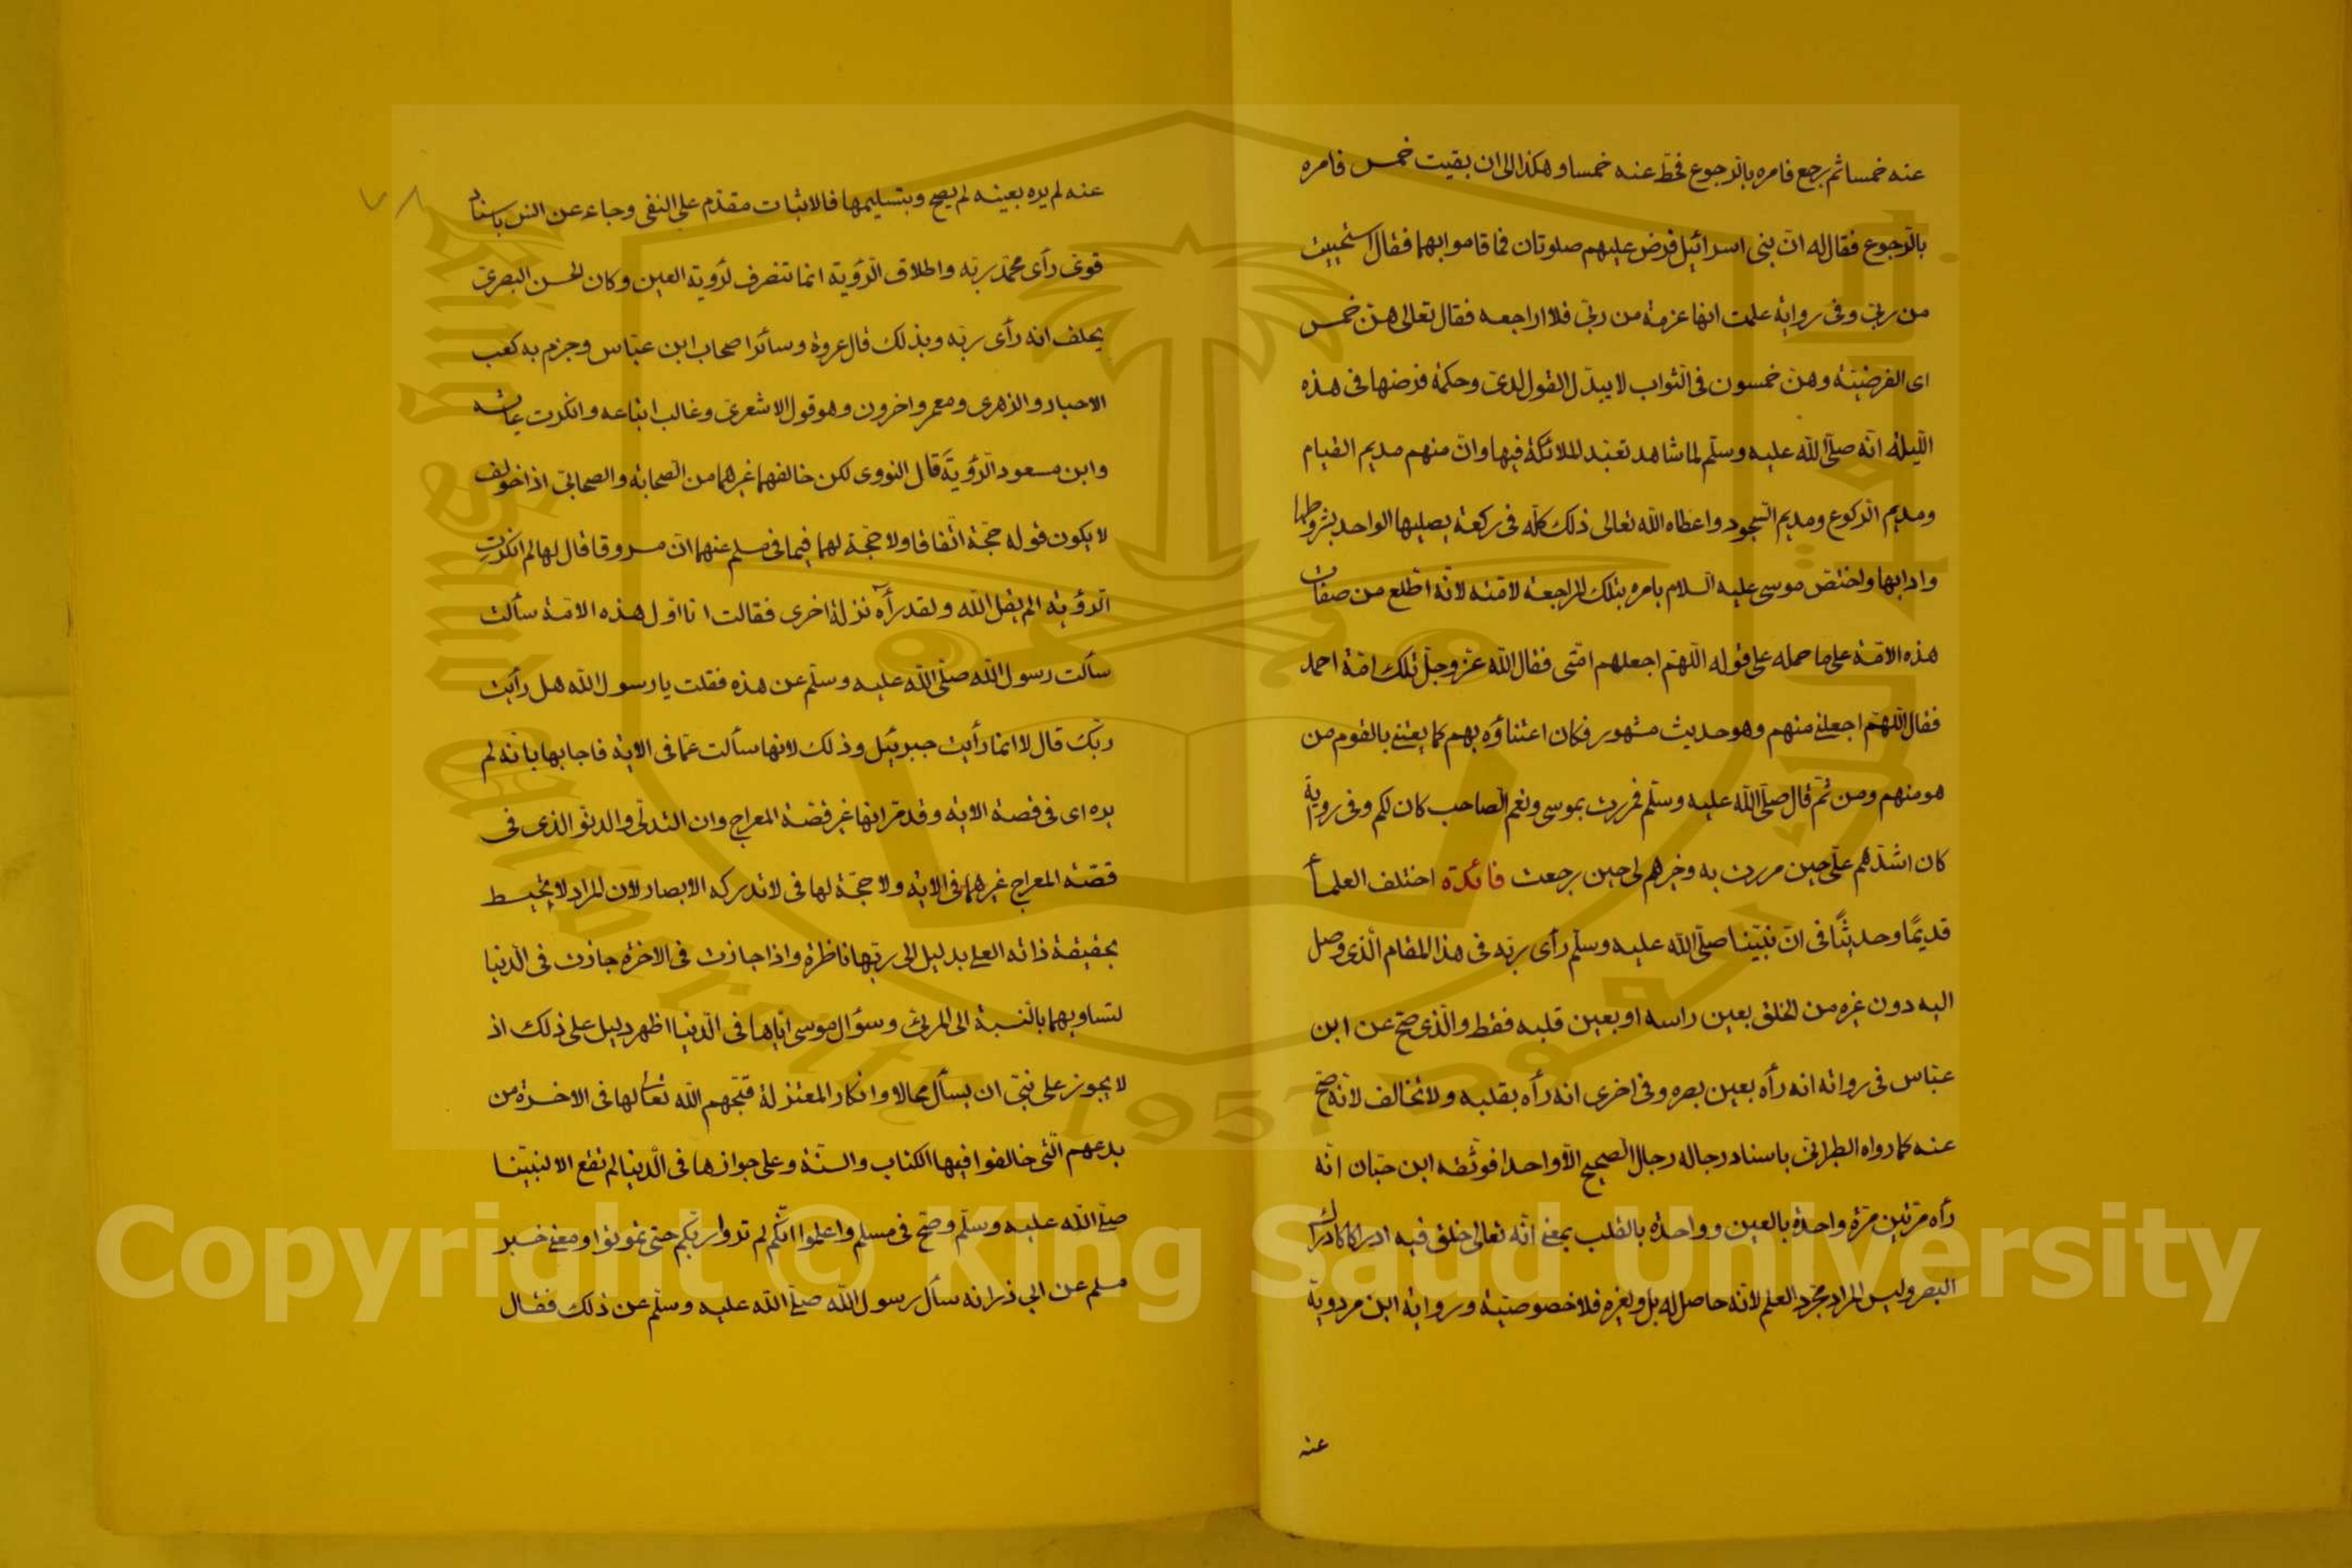 عنه خمسا ثم رجع فامره بالرجوع فحطّ عنه خمسا وهكذا الى ان بقيت خمس فامره
بالرجوع فقال له انّ بنى اسرائيل فرض عليهم صلوتان فما قاموا بهما فقال استحييت
من ربّى وفى رواية علمت انها عزمة من ربّى فلا اراجعه فقال تعالى هنّ خمس
اى الفرضيّة وهنّ خمسون فى الثواب لا يبدّل القول لدىّ وحكمة فرضها فى هذه
اللّيلة انّه صلّى الله عليه وسلّم لما شاهد تعبّد الملائكة فيها وانّ منهم مديم القيام
ومديم الرّكوع ومديم السّجود واعطاه الله تعالى ذلك كلّه فى ركعة يصليها الواحد بشروطها
وادابها واختصّ موسى عليه السلام بامره بتلك المراجعة لامّته لانّه اطّلع من صفات
هذه الامّة على ما حمله على قوله اللّهمّ اجعلهم امّتى فقال الله عزّ وجلّ تلك امّة احمد
فقال اللّهمّ اجعلنى منهم وهو حديث مشهور فكان اعتناؤه بهم كما يعتنى بالقوم من
هو منهم ومن ثمّ قال صلّى الله عليه وسلّم فمررت بموسى ونعم الصّاحب كان لكم وفى رواية
كان اشدّهم علىّ حين مررت به وخيرهم لى حين رجعت فائدة اختلف العلماء
قديمًا وحديثًا فى انّ نبيّنا صلّى الله عليه وسلّم رأى ربّه فى هذا المقام الّذى وصل
اليه دون غيره من الخلق بعين راسه او بعين قلبه فقط والّذى صحّ عن ابن
عبّاس فى رواته انه رأه بعين بصره وفى اخرى انه رأه بقلبه ولا تخالف لانّه صحّ
عنه كما رواه الطبرانى باسناد رجاله رجال الصحيح الّا واحدا فوثّقه ابن حبّان انّه
رأه مرّتين مرّة واحدة بالعين وواحدة بالقلب بمعنى انّه تعالى خلق فيه ادراكا كادراك
البصر وليس المراد مجرّد العلم لانّه حاصل له بل ولغيره فلا خصوصيّة ورواية ابن مردويه
عنه
عنه لم يره بعينه لم يصح وبتسليمها فالاثبات مقدّم على النفى وجاء عن انس باسناد
قوىّ رأى محمّد ربّه واطلاق الرّؤية انما تنصرف لرؤية العين وكان الحسن البصرىّ
يحلف انه رأى ربّه وبذلك قال عروة وسائر اصحاب ابن عبّاس وجزم به كعب
الاحبار والزهرى ومعمر واخرون وهو قول الاشعرىّ وغالب اتباعه وانكرت عائشه
وابن مسعود الرّؤية قال النووى لكن خالفهما غيرهما من الصّحابة والصحابىّ اذا خولف
لا يكون قوله حجّة اتّفاقا ولا حجّة لهما فيما فى مسلم عنهما انّ مسروقا قال لها لم انكرت
الرّؤية الم يقل الله ولقد رأه نزلة اخرى فقالت انا اوّل هذه الامّة سألت
سألت رسول الله صلّى الله عليه وسلّم عن هذه فقلت يا رسول الله هل رأيت
ربّك قال لا انما رأيت جبرئيل وذلك لانها سألت عمّا فى الاية فاجابها بانّه لم
يره اى فى قصة الاية وقد مرّ انها غير قصّة المعراج وان التدلّى والدنوّ الذى فى
قصّة المعراج غيرهما فى الاية ولا حجّة لها فى لا تدركه الابصار لان المراد لا يحيط
بحقيقة ذاته العلى بدليل الى ربّها ناظرة واذا جازت فى الاخرة جازت فى الدّنيا
لتساويهما بالنّسبة الى المرئىّ وسؤال موسى ايّاها فى الدّنيا اظهر دليل على ذلك اذ
لا يجوز على نبىّ ان يسأل محالا وانكار المعتزلة قبّحهم الله تعالى لها فى الاخرة من
بدعهم الّتى خالفوا فيها الكتاب والسنّة وعلى جوازها فى الدّنيا لم تقع الا لنبيّنا
صلى الله عليه وسلّم وصحّ فى مسلم واعلموا انّكم لم تروا ربّكم حتى تموتوا ومعنى خبر
مسلم عن ابى ذر انه سأل رسول الله صلّى الله عليه وسلّم عن ذلك فقال
King Saud University
1957
Copyright © King Saud University